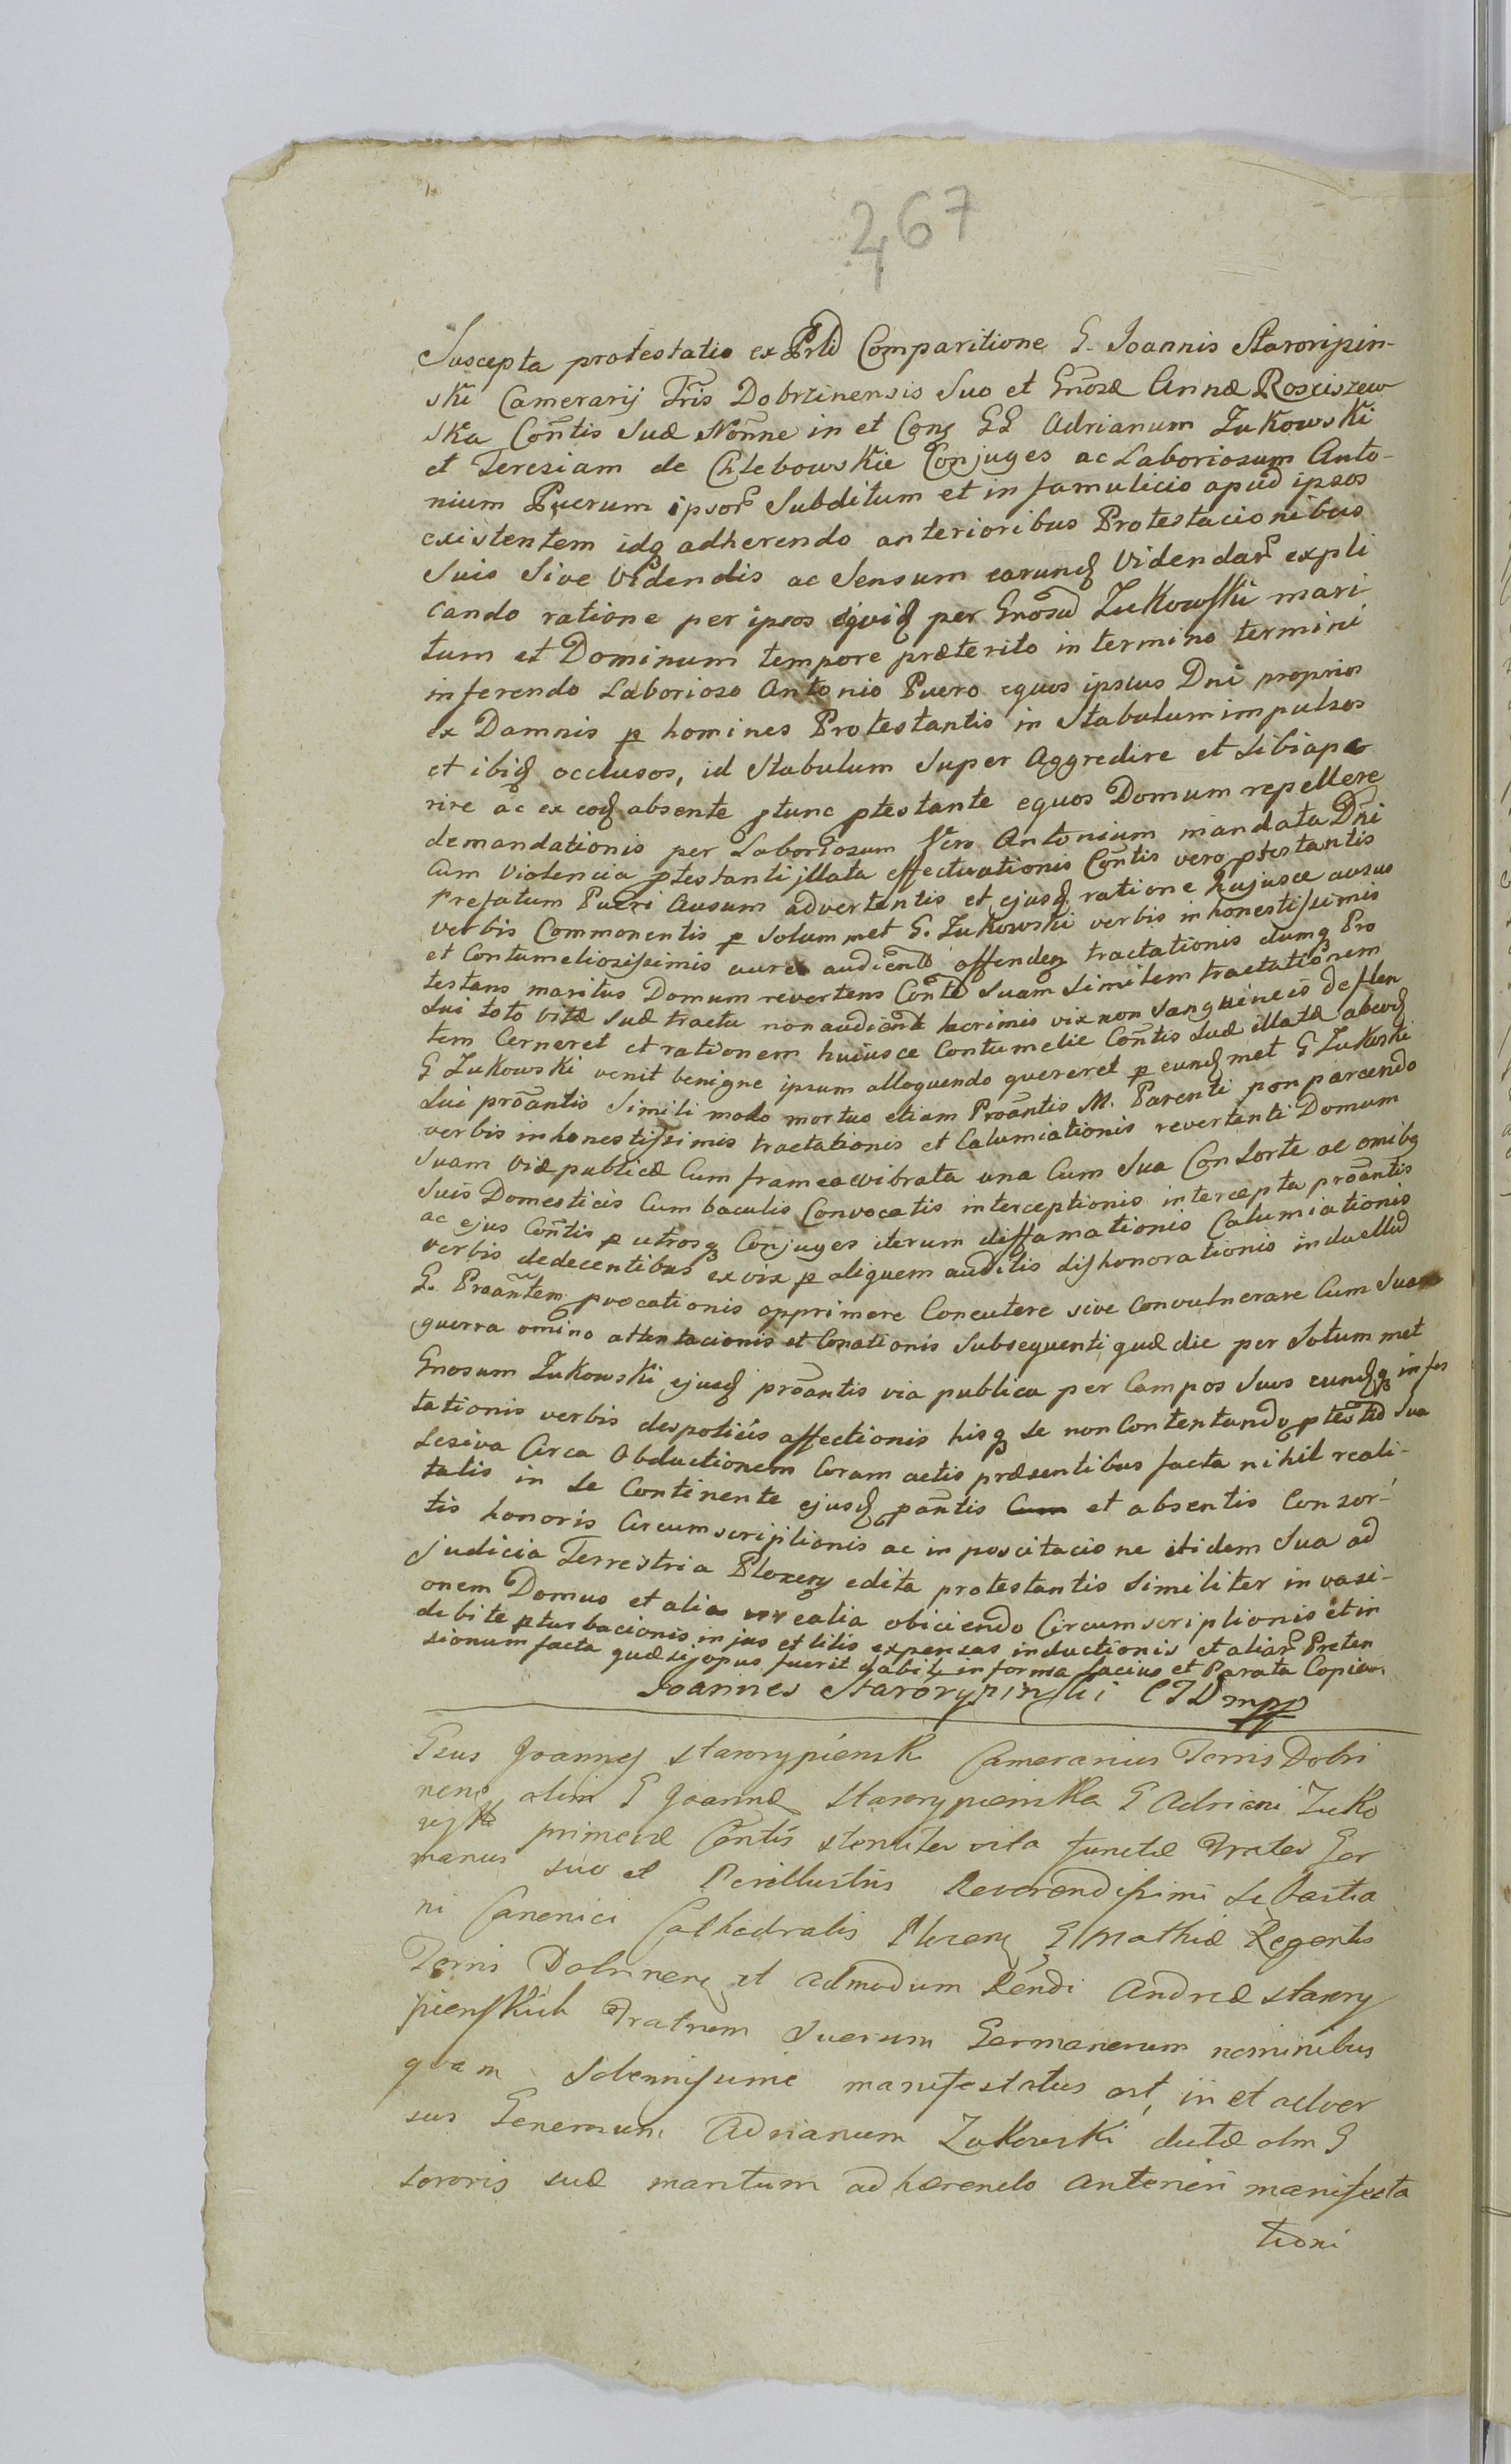 267
Suscepta protestatio ex Prli Comparitione G. Joannis Staroripin-
ski Camerarij Tris Dobrzinensis Suo et Gnosæ Annæ Rosciszew
ska Contis Suæ Nomne in et Conq GG Adrianum Zukowski
et Teresiam de Chlebowskie Conjuges ac Laboriosum Anto-
nium Puerum ipsor Subditum et in famulicio apud ipsos
existentem idq adherendo anterioribus Protestacionibus
Suis Sive Videndis ac Sensum earund Videndar expli
cando ratione per ipsos per Gnosu Zukowski mari
tum et Dominum tempore præterito in termino termini
inferendo Laborioso Antonio Puero equos ipsius Dni proprios
ex Damnis p homines Protestantis in Stabulum impulsos
et ibid occlusos, id Stabulum Super Aggredire et Sibi ape
rire ac ex eod absente ptunc ptestante equos Domum repellere
demandationis per Laboriosum Vero Antonium mandata Dni
Cum Violencia ptestanti illata effectuationis Contis vero ptestantis
Prefatum Pueri Ausum advertentis et ejusd ratione hujusce ausus
verbis Commonentis p Solummet G. Zukowski verbis inhonestissimis
et Contumeliosissimis aures audiend offenden tractationis dumq Pro
testans maritus Domum revertens Conte Suam Similem tractationem
Sui toto vitæ suæ tractu non audiente lacrimis vix non Sanguineis deflen
tem Cerneret et rationem huiusce Contumelie Contis Suæ illatæ abeod
G Zukowski venit benigne ipsum alloquendo quereret p eund met G Zukoski
Sui proantis Simili modo mortuo etiam Proantis M. Parenti non parcendo
verbis inhonestissimis tractationis et Calumiationis revertenti Domum
Suam Viæ publicæ Cum framea vibrata una Cum Sua Consorte ac omibq
Suis Domesticis Cum baculis Convocatis interceptionis intercepta proantis
ac ejus Contis p utrosq Conjuges iterum diffamationis Calumiationis
verbis dedecentibus ex vix p aliquem auditis dishonorationis in duellud
G. Proantem pvocationis opprimere Concutere sive Convulnerare Cum Suam
guerra omino attentacionis et Conationis Subsequenti quæ die per Solum met
Gnosum Zukowski ejusd proantis via publica per Campos Suos eundq infes
tationis verbis despoticis affectionis hisq Se non Contentando ptestio Sua
Lesiva Circa Obductionem Coram actis præsentibus facta nihil reali-
tatis in Se Continente ejusd pantis et absentis Consor-
tis honoris Circumscriptionis ac in poscitacione itidem Sua ad
Judicia Terrestria Plocen edita protestantis Similiter invasi-
onem Domus et alia realia obiciendo Circumscriptionis et in
debite pturbacionis in jus et litis expensas inductionis et aliar Preten
sionum facta quæ sj opus fuerit dabit in forma Lacius et Parata Copia
Joannes Starorypinski CTD mpp
Gsus Joannes Starorypienski Camerarius Terris Dobri
nens olim G Joannæ Starorypienska G Adriani Zuko
wski primævæ Contis vita functæ Frater Ger
manus suo et Perillustris Reverendissimi Sebastia
ni Canonici Cathedralis Plocen G Mathiæ Regentis
Terris Dobrinens et admodum Rendi Andreæ Starory
pienskich Fratrum Suorum Germanorum nominibus
quam Solennissime manifestatus est, in et adver
sus Generosum Adrianum Zukowski dictæ olm G
Sororis suæ maritum adhærendo anteriori manifesta
tioni